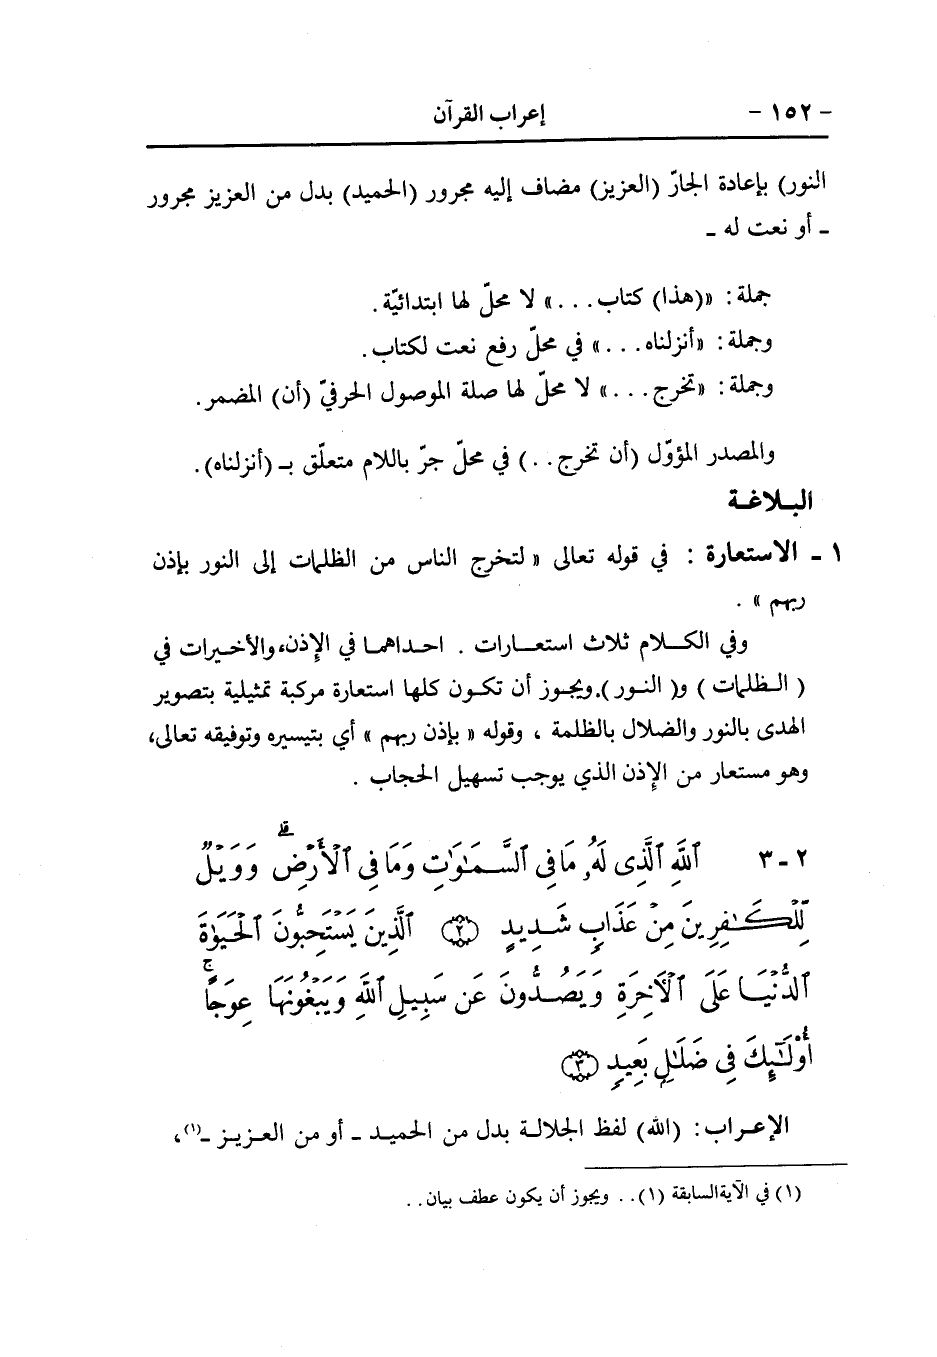 - ١٥٢ - إعراب القرآن
النور) بإعادة الجارّ (العزيز) مضاف إليه مجرور (الحميد) بدل من العزيز مجرور
ـ أو نعت له ـ
جملة: «(هذا) كتاب...» لا محلّ لها ابتدائيّة.
وجملة: «أنزلناه...» في محلّ رفع نعت لكتاب.
وجملة: «تخرج...» لا محلّ لها صلة الموصول الحرفيّ (أن) المضمر.
والمصدر المؤوّل (أن تخرج..) في محلّ جرّ باللام متعلّق بـ (أنزلناه).
البـلاغـة
١ ـ الاستعارة : في قوله تعالى « لتخرج الناس من الظلمات إلى النور بإذن
ربهم » .
وفي الكـلام ثلاث استعـارات . احـداهمـا في الإذن، والأخـيرات في
( الـظلمات ) و( النـور ). ويجـوز أن تكـون كلها استعارة مركبة تمثيلية بتصوير
الهدى بالنور والضلال بالظلمة ، وقوله « بإذن ربهم » أي بتيسيره وتوفيقه تعالى،
وهو مستعار من الإذن الذي يوجب تسهيل الحجاب .
٢ - ٣ ٱللَّهِ ٱلَّذِى لَهُۥ مَا فِى ٱلسَّمَٰوَٰتِ وَمَا فِى ٱلْأَرْضِ ۗ وَوَيْلٌ
لِّلْكَٰفِرِينَ مِنْ عَذَابٍ شَدِيدٍ ﴿٢﴾ ٱلَّذِينَ يَسْتَحِبُّونَ ٱلْحَيَوٰةَ
ٱلدُّنْيَا عَلَى ٱلْءَاخِرَةِ وَيَصُدُّونَ عَن سَبِيلِ ٱللَّهِ وَيَبْغُونَهَا عِوَجًا ۚ
أُو۟لَٰٓئِكَ فِى ضَلَٰلٍۭ بَعِيدٍ ﴿٣﴾
الإعـراب: (الله) لفظ الجلالـة بدل من الحميـد ـ أو من العـزيـز ـ(١)،
(١) في الآية السابقة (١).. ويجوز أن يكون عطف بيان..